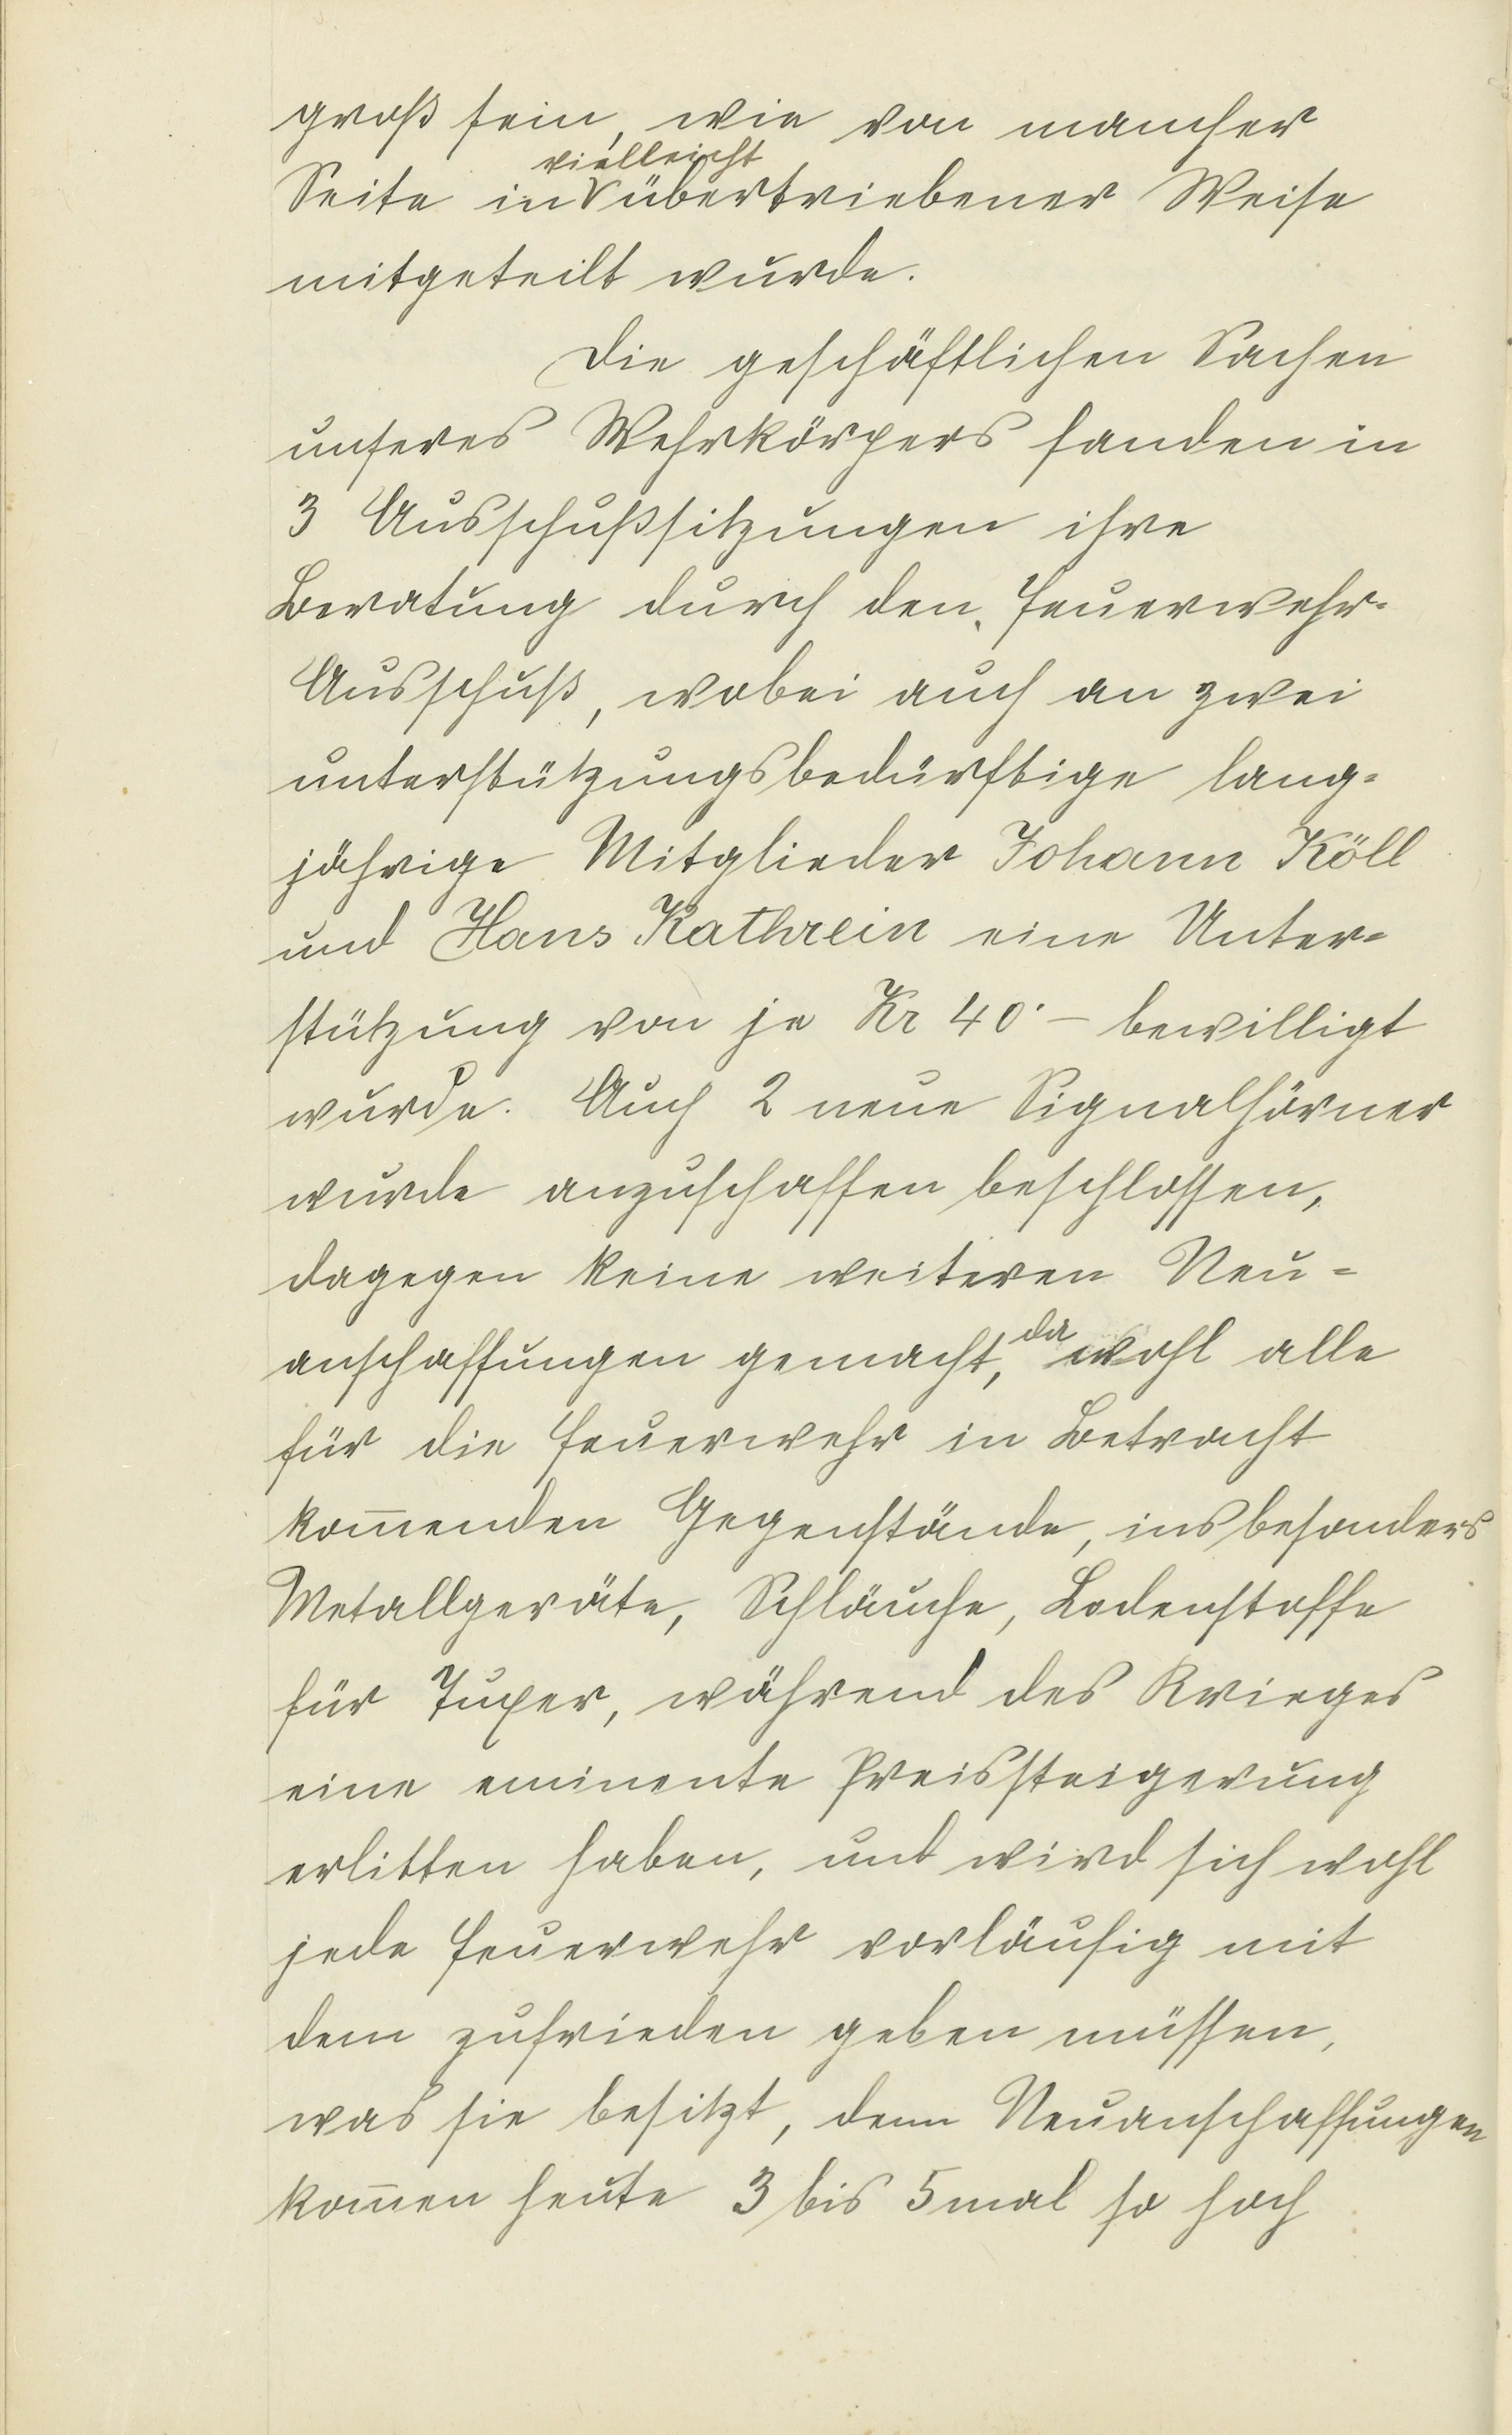 groß sein, wie von mancher
vielleicht
Seite in übertriebener Weise
mitgeteilt wurde.
Die geschäftlichen Sachen
unseres Wehrkörpers fanden in
3 Ausschußsitzungen ihre
Beratung durch den Feuerwehr-
Ausschuß, wobei auch an zwei
unterstützungsbedürftige lang-
jährige Mitglieder Johann Köll
und Hans Kathrein eine Unter-
stützung von je Kr 40·– bewilligt
wurde. Auch 2 neue Signalhörner
wurde anzuschaffen beschlossen,
dagegen keine weiteren Neu-
anschaffungen gemacht, da wohl alle
für die Feuerwehr in Betracht
kom̄enden Gegenstände, insbesonders
Metallgeräte, Schläuche, Lodenstoffe
für Juper, während des Krieges
eine eminente Preissteigerung
erlitten haben, und wird sich wohl
jede Feuerwehr vorläufig mit
dem zufrieden geben müssen,
was sie besitzt, denn Neuanschaffungen
kom̄en heute 3 bis 5mal so hoch